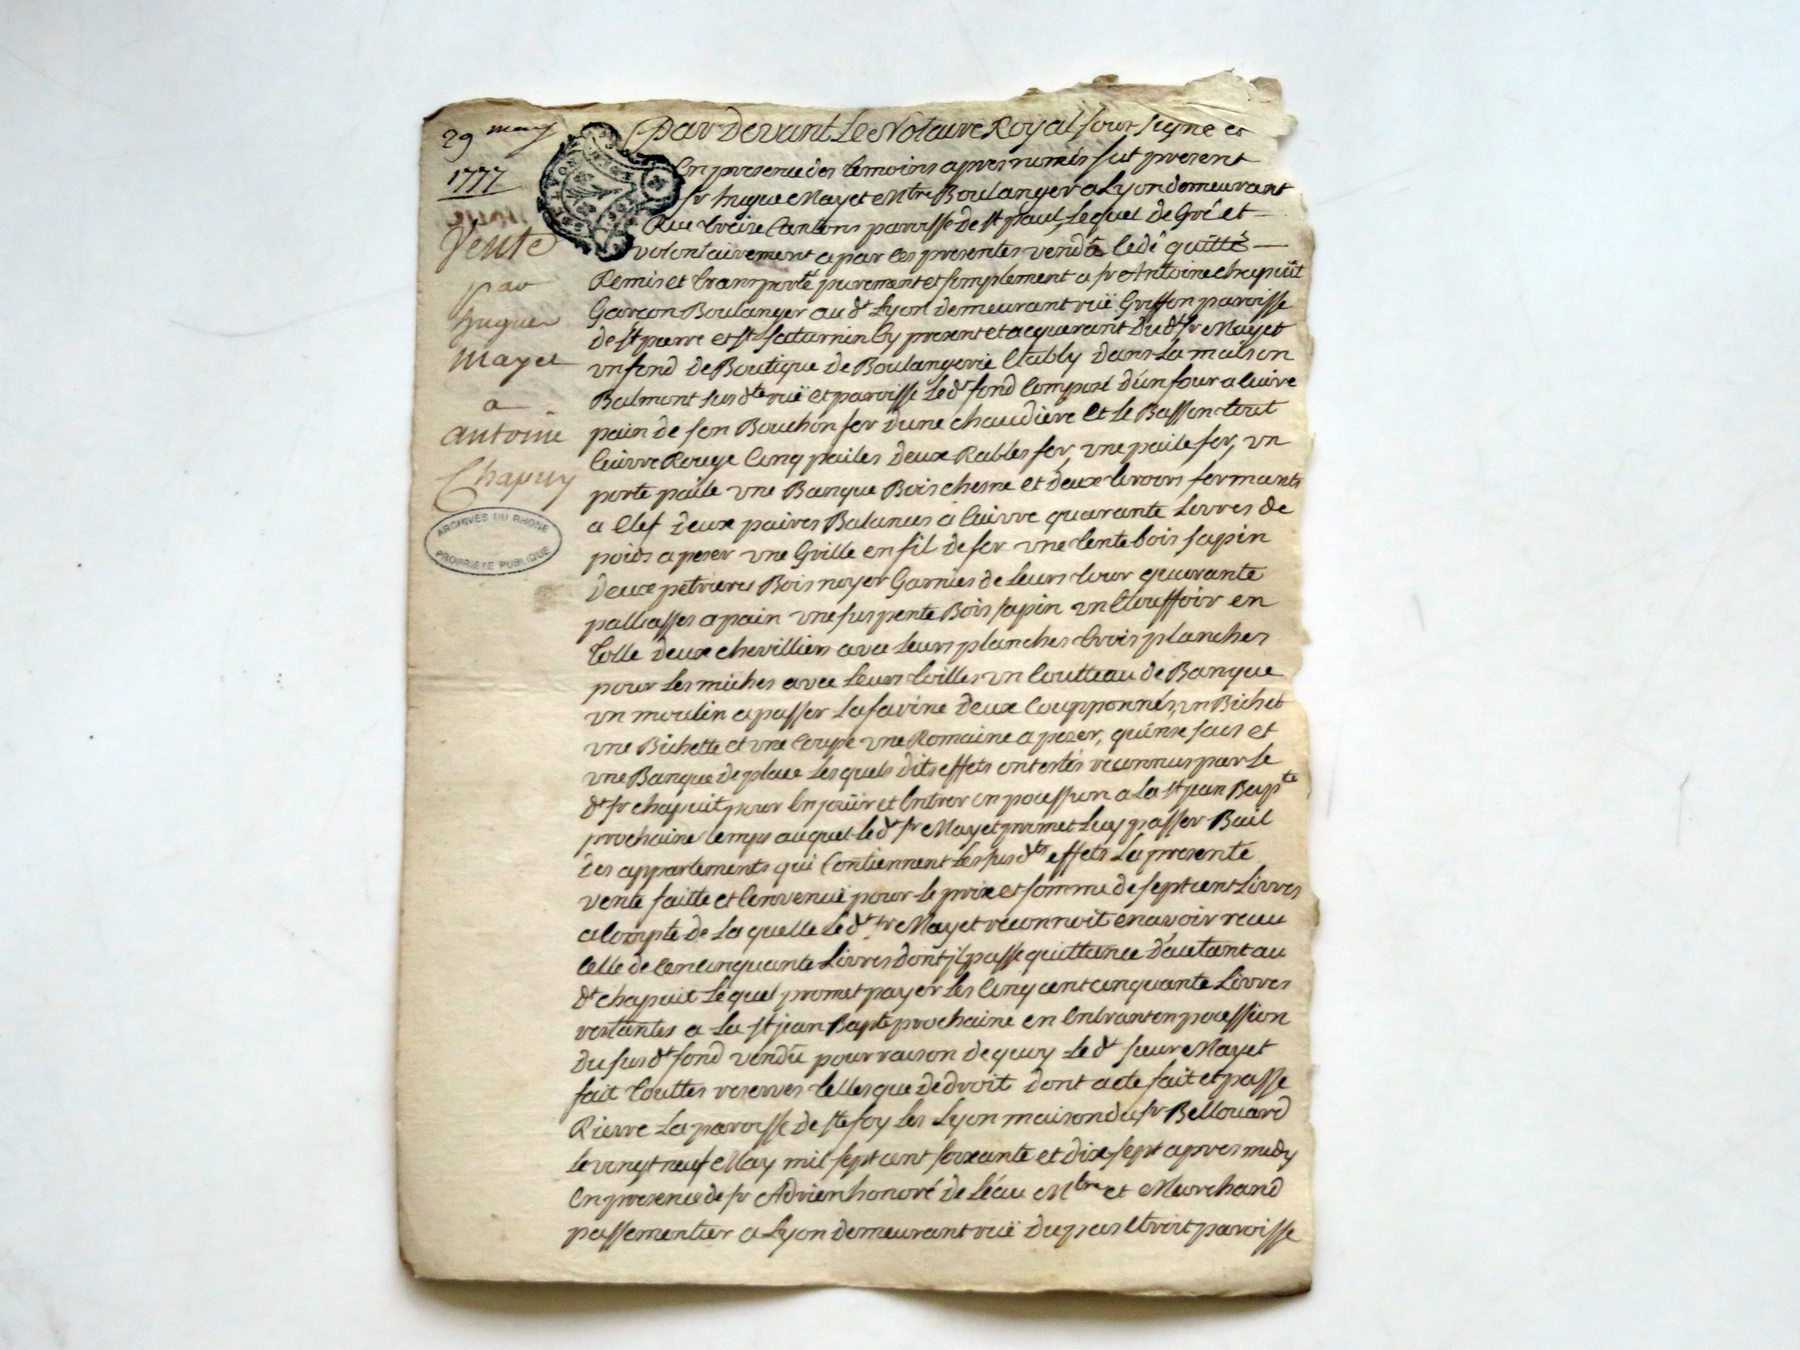 29 may
1777
Vente
par
hugues
Mayet
a
antoine
Chapuy
ARCHIVES DU RHONE
PROPRIÉTÉ PUBLIQUE
Par Devant Le Notaire Royal sous signe et
En presence des temoins apres només fut present
sr hugue Mayet Mtre Boulanger a Lyon demeurant
Rue treize Cantons paroisse de st paul, Lequel de Gré et
volontairement a par les presentes vendû cedé quitté
Remis et transporté purement et simplement a sr Antoine chapuit
Garçon Boulanger aud Lyon demeurant ruë Griffon paroisse
de st pierre et st saturnin Cy present et acquerant dudt sr Mayet
un fond de Boutique de Boulangerie Etably dans La maison
Balmont susdte ruë et paroisse Ledt fond Composé d'un four a Cuire
pain de son Bouchon fer d'une chaudiere Et Le Basson tout
Cuivre Rouge Cinq pailes deux Rables fer, une paile fer, un
porte paile une Banque Bois chesne et deux tiroirs fermants
a Clef deux paires Balances a Cuivre quarante Livres de
poids a peser une Grille en fil de fer une tente bois sapin
deux petrieres Bois noyer Garnies de Leurs tour quarante
palliasses a pain une suspente Bois sapin un Etouffoir en
tolle deux chevilliers avec Leurs planches trois planches
pour Les miches avec Leurs toilles un Coutteau de Banque
un moulin a passer La farine deux Coupponnés, un Bichet
une Bichette et une Coupe une Romaine a peser, quinse sacs et
une Banque de place Les quels dits effets ont estés reconnus par Le
dt sr chapuit pour En joüir et Entrer en pocession a La st jean Bapte
prochaine temps au quel le dt sr Mayet promet Luy passer Bail
des appartements qui Contiennent Les susdts effets La presente
vente faitte et Convenuë pour le prix et somme de sept cent Livres
a Compte de La quelle Le dt sr Mayet reconnoit en avoir receu
Celle de Cent cinquante Livres dont jl passe quittance d'autant au
dt chapuit Le quel promet payer Les Cinq cent cinquante Livres
restantes a La st jean Bapte prochaine en Entrant en pocession
du susdt fond vendû pour raison de quoy Le dt sieur Mayet
fait touttes reserves telles que de droit dont acte fait et passe
Riere La paroisse de ste foy Les Lyon maison du sr Bellouard
Le vingt neuf May mil sept cent soixante et dix sept apres midy
En presence de sr Adrien honoré de Léau Mtre et Marchand
passementier a Lyon demeurant ruë du pas Etroit paroisse